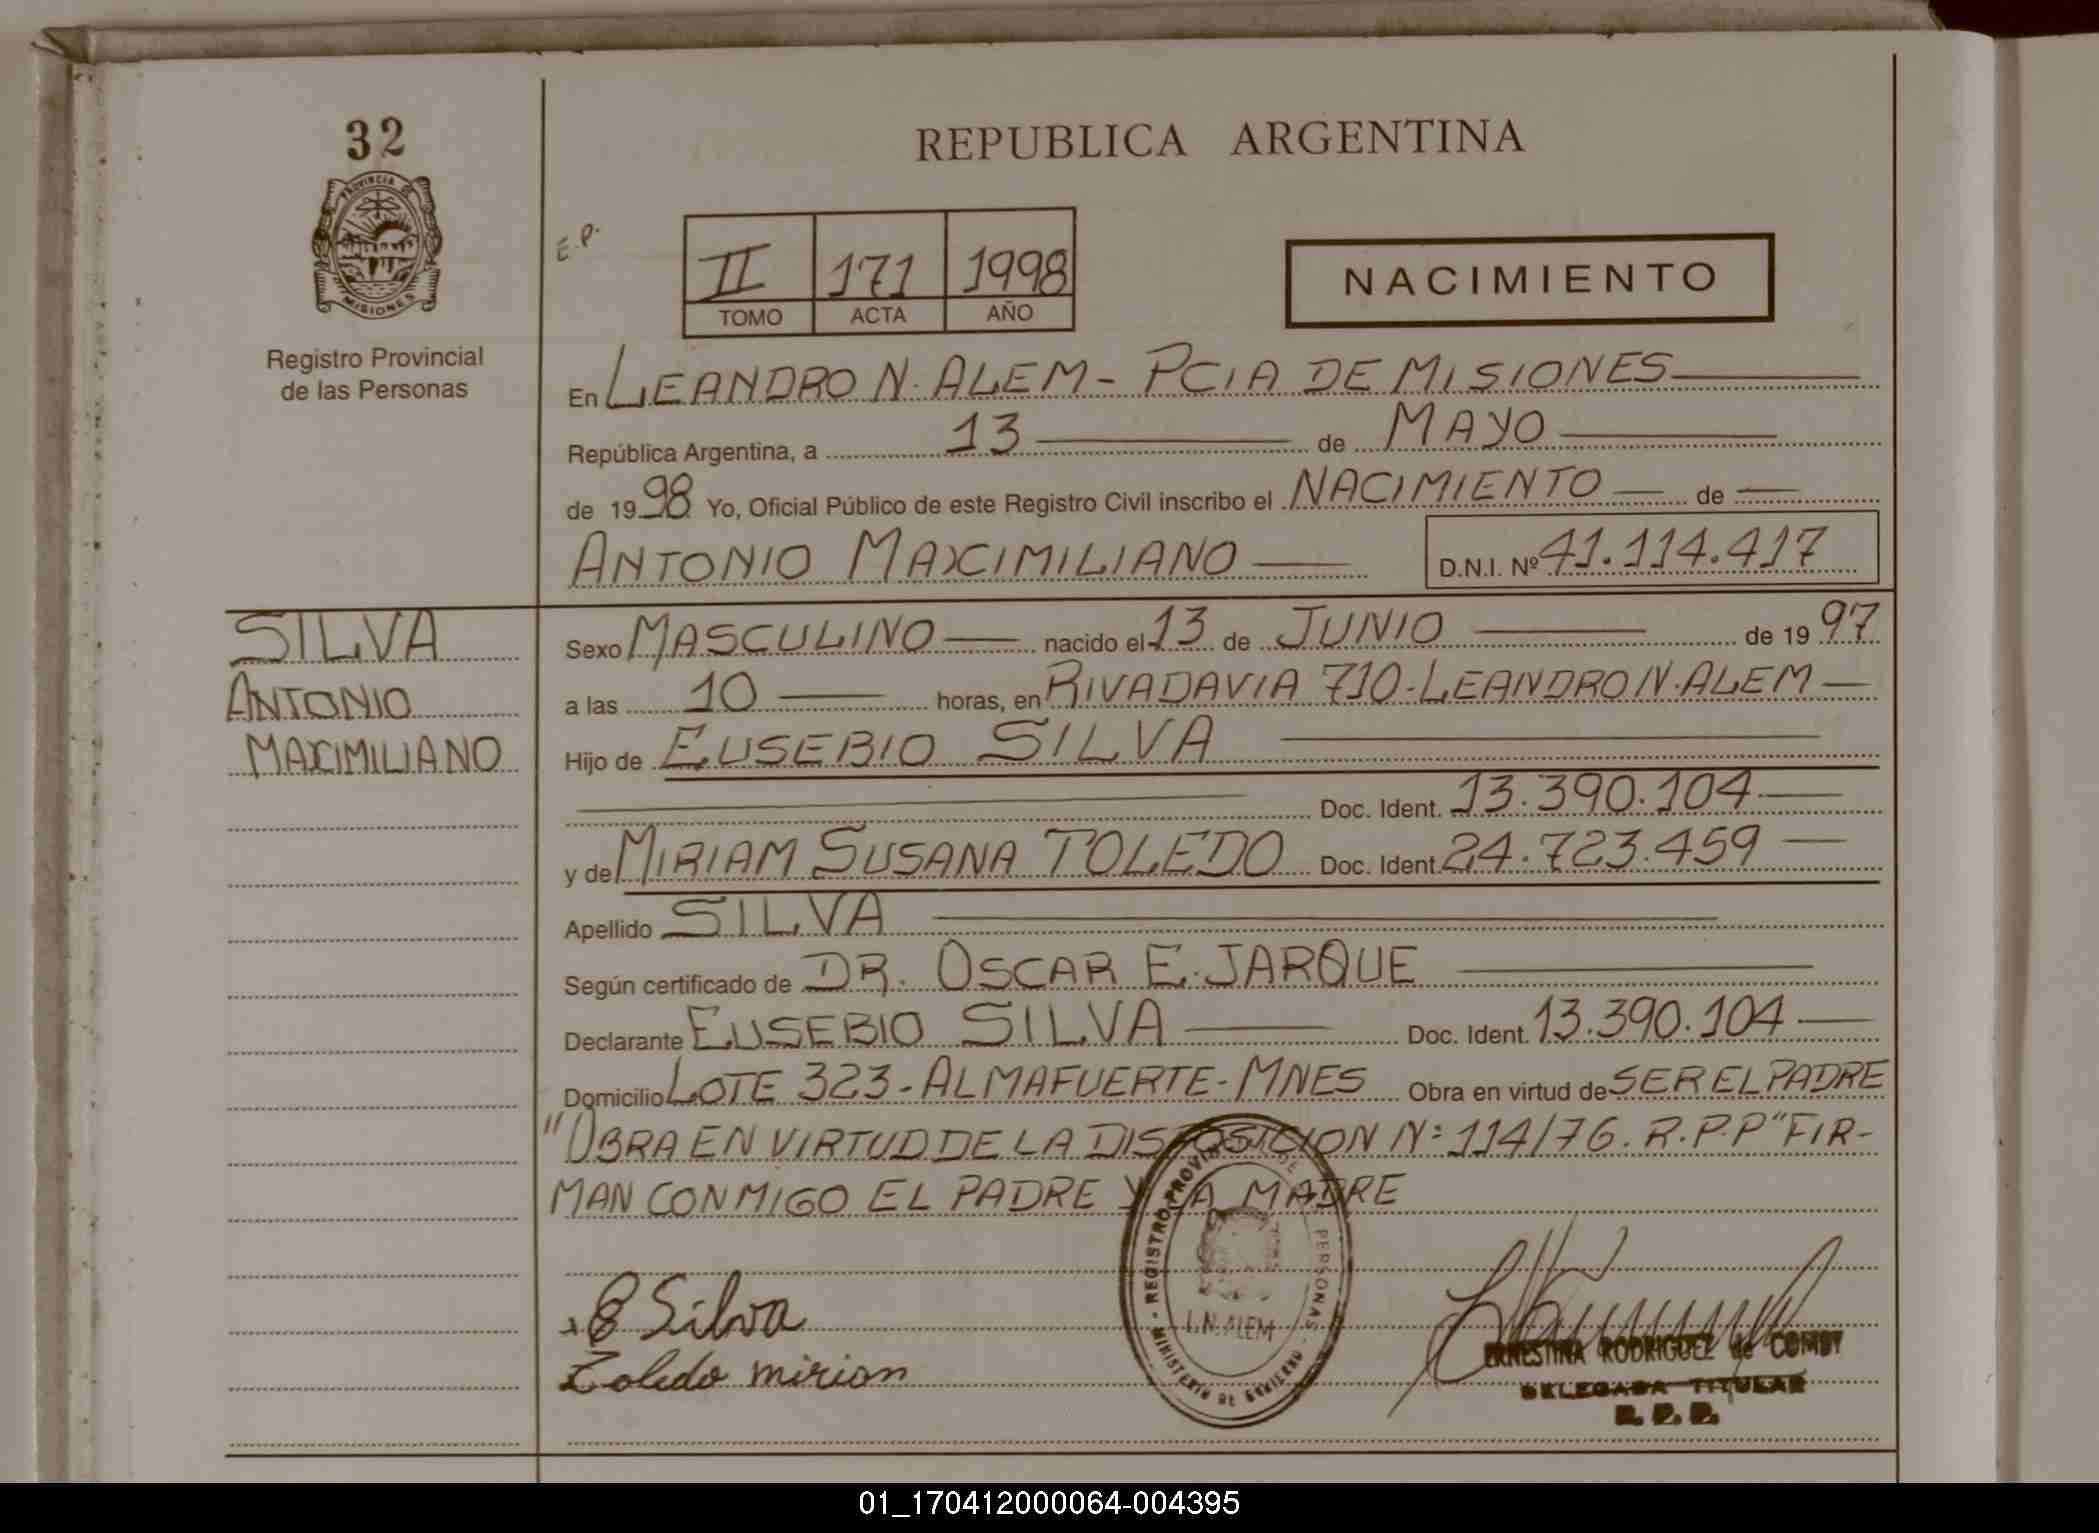 32
PROVINCIA DE
MISIONES
Registro Provincial
de las Personas
REPUBLICA ARGENTINA
E.P.
II 171 1998
TOMO ACTA AÑO
NACIMIENTO
En LEANDRO N. ALEM - PCIA DE MISIONES
República Argentina, a 13 de MAYO
de 1998 Yo, Oficial Público de este Registro Civil inscribo el NACIMIENTO de
ANTONIO MAXIMILIANO D.N.I. Nº 41.114.417
SILVA
ANTONIO
MAXIMILIANO
Sexo MASCULINO nacido el 13 de JUNIO de 1997
a las 10 horas, en RIVADAVIA 710-LEANDRO N. ALEM
Hijo de EUSEBIO SILVA
Doc. Ident. 13.390.104
y de MIRIAM SUSANA TOLEDO Doc. Ident. 24.723.459
Apellido SILVA
Según certificado de DR. OSCAR E. JARQUE
Declarante EUSEBIO SILVA Doc. Ident. 13.390.104
Domicilio LOTE 323-ALMAFUERTE-MNES Obra en virtud de SER EL PADRE
"OBRA EN VIRTUD DE LA DISPOSICION Nº 114/76. R.P.P" FIR-
MAN CONMIGO EL PADRE Y LA MADRE
E Silva
Toledo mirian
MINISTERIO DE GOBIERNO - REGISTRO PROVINCIAL DE PERSONAS
L.N. ALEM
ERNESTINA RODRIGUEZ de COMBY
DELEGADA TITULAR
R. P. P.
01_170412000064-004395